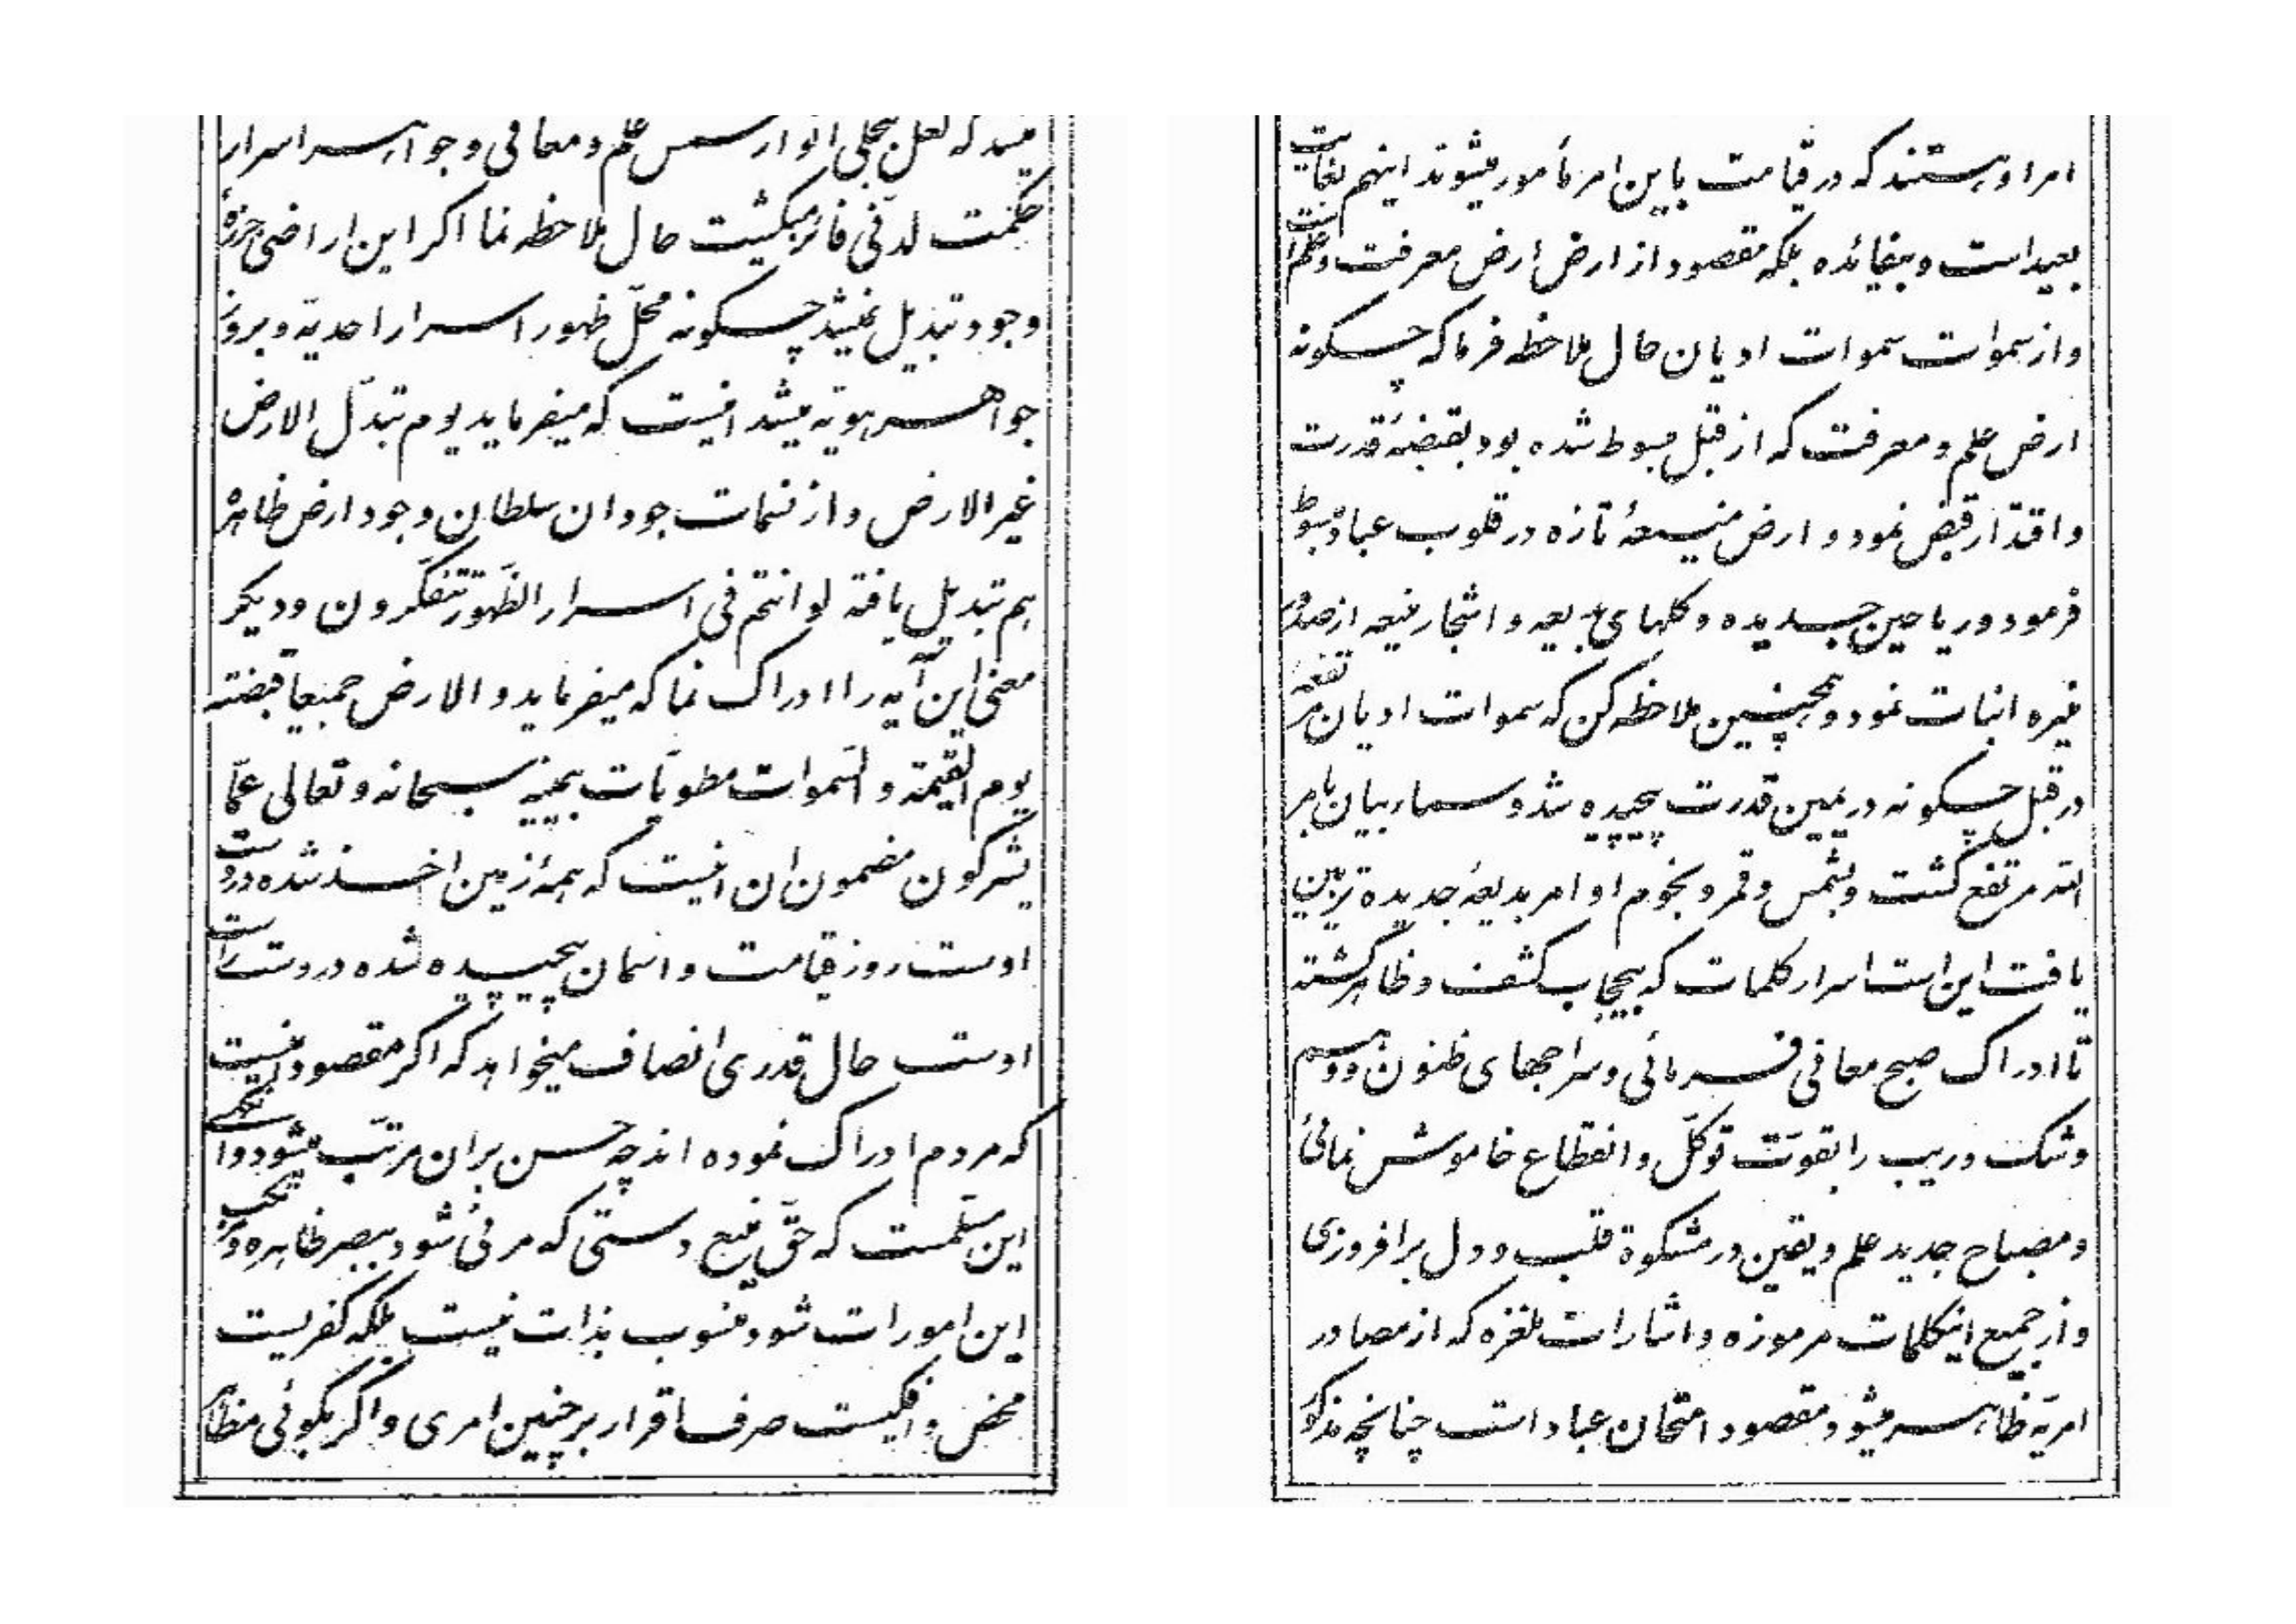 میشد که لعل بتجلی انوار شمس علم و معانی و جواهر اسرار
حکمت لدنّی فائز میگشت حال ملاحظه نما اگر این اراضی جرزهٔ
وجود تبدیل نمیشد چگونه محلّ ظهور اسرار احدیّه و بروز
جواهر هویّه میشد اینست که میفرماید یوم تبدّل الارض
غیر الارض و از نسمات جود ان سلطان وجود ارض ظاهره
هم تبدیل یافته لو انتم فی اسرار الظّهور تتفکّرون و دیگر
معنی این آیه را ادراک نما که میفرماید و الارض جمیعاً قبضته
یوم القیمة و السّموات مطویّات بیمینه سبحانه و تعالی عمّا
یشرکون مضمون ان اینست که همهٔ زمین اخذ شده در دست
اوست روز قیامت و اسمان پیچیده شده در دست راست
اوست حال قدری انصاف میخواهد که اگر مقصود اینست
که مردم ادراک نموده اند چه حسن بران مرتّب میشود و انگهی
این مسلّمست که حقّ منیع دستی که مرئی شود ببصر ظاهره و مرتکب
این امورات شود منسوب بذات نیست بلکه کفریست
محض و افکیست صرف اقرار بر چنین امری و اگر بگوئی مظاهر
امر او هستند که در قیامت باین امر مأمور میشوند اینهم بغایت
بعید است و بیفائده بلکه مقصود از ارض ارض معرفت و علم است
و از سموات سموات ادیان حال ملاحظه فرما که چگونه
ارض علم و معرفت که از قبل مبسوط شده بود بقبضهٔ قدرت
و اقتدار قبض نمود و ارض منیعهٔ تازه در قلوب عباد مبسوط
فرمود و ریاحین جدیده و گلهای بدیعه و اشجار منیعه از صدور
منیره انبات نمود و همچنین ملاحظه کن که سموات ادیان مرتفعه
در قبل چگونه در یمین قدرت پیچیده شد و سماء بیان بامر
اللّه مرتفع گشت و بشمس و قمر و نجوم اوامر بدیعهٔ جدیده تزیین
یافت این است اسرار کلمات که بیحجاب کشف و ظاهر گشته
تا ادراک صبح معانی فرمائی و سراجهای ظنون و وهم
و شک و ریب را بقوّت توکّل و انقطاع خاموش نمائی
و مصباح جدید علم و یقین در مشکوة قلب و دل برافروزی
و از جمیع اینکلمات مرموزه و اشارات ملغزه که از مصادر
امریّه ظاهر میشود مقصود امتحان عباد است چنانچه مذکور